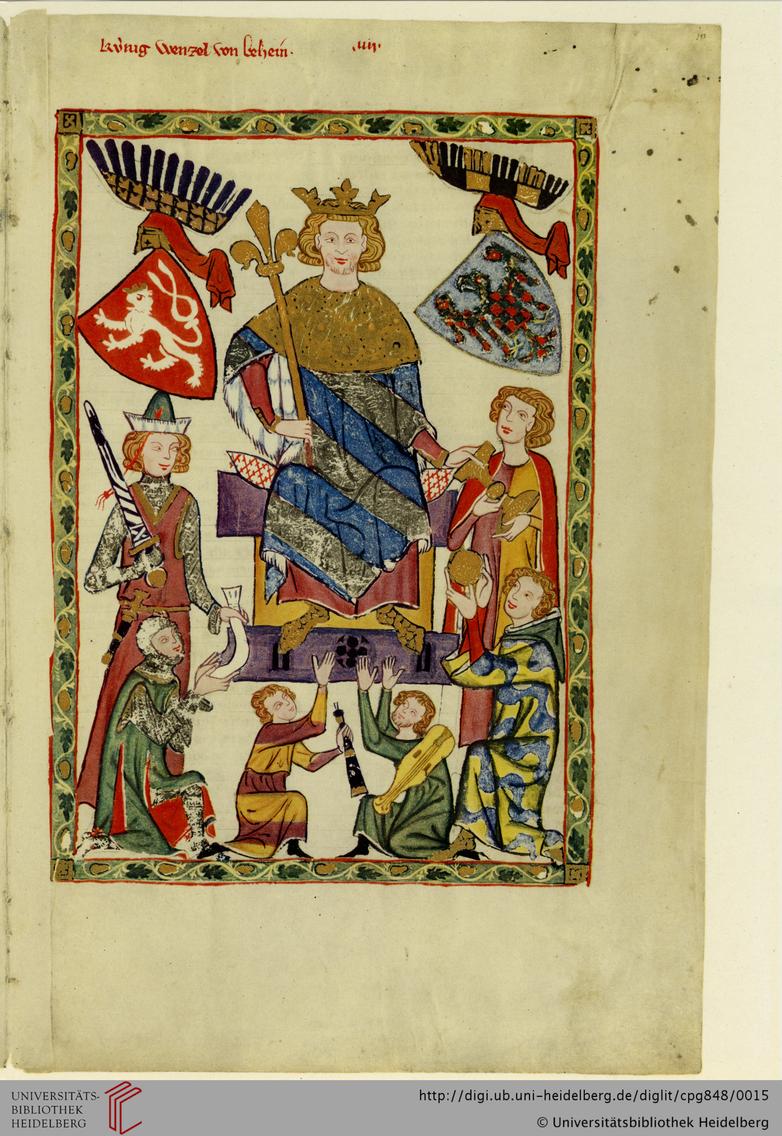 kv́nig wenzel von behein· ·iiij·
UNIVERSITÄTS-
BIBLIOTHEK
HEIDELBERG
http://digi.ub.uni-heidelberg.de/diglit/cpg848/0015
© Universitätsbibliothek Heidelberg